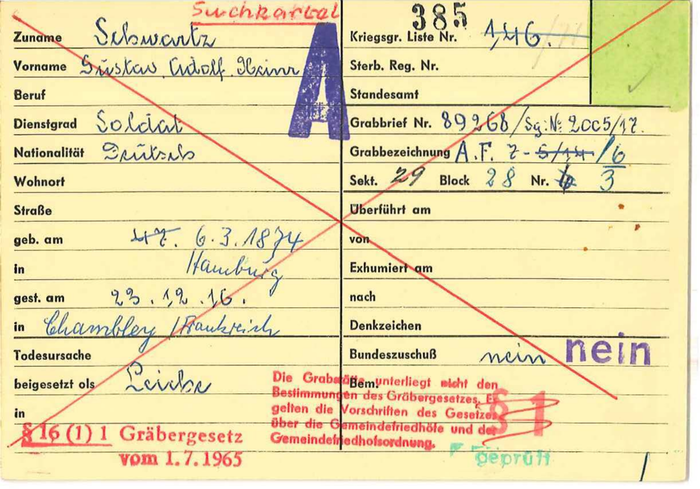 Suchkartei
385
Zuname Schwartz
Vorname Gustav Adolf Heinr
Beruf
Dienstgrad Soldat
Nationalität Deutsch
Wohnort
Straße
geb. am 6.3.1874
in Hamburg
gest. am 23.12.16.
in Chambley / Frankreich
Todesursache
beigesetzt als Leiche
in
§ 16 (1) 1 Gräbergesetz
vom 1.7.1965
A
Kriegsgr. Liste Nr. 1,46.
Sterb. Reg. Nr.
Standesamt
Grabbrief Nr. 89268/Sg. No 2005/17.
Grabbezeichnung A.F. 7-5/14/6
Sekt. 29 Block 28 Nr. 3
Überführt am
von
Exhumiert am
nach
Denkzeichen
Bundeszuschuß nein nein
Bem.
Die Grabstätte unterliegt nicht den
Bestimmungen des Gräbergesetzes. Es
gelten die Vorschriften des Gesetzes
über die Gemeindefriedhöfe und der
Gemeindefriedhofsordnung.
§ 1
geprüft